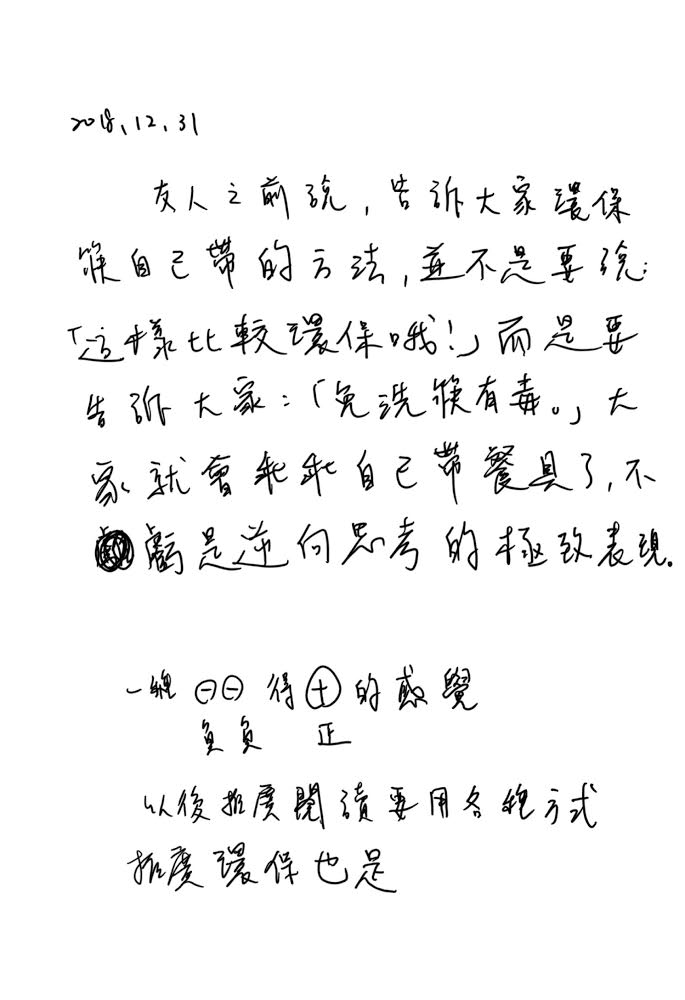 2018.12.31
友人之前說，告訴大家環保
筷自己帶的方法，並不是要說：
「這樣比較環保哦！」而是要
告訴大家：「免洗筷有毒。」大
家就會乖乖自己帶餐具了，不
虧是逆向思考的極致表現。
一種⊖⊖得⊕的感覺
負負 正
以後推廣閱讀要用各種方式
推廣環保也是